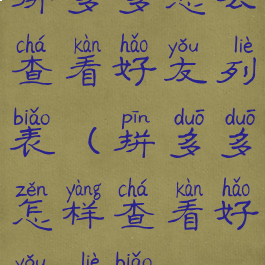 拼多多怎么
chá kàn hǎo yǒu liè
查看好友列
biǎo pīn duō duō
表(拼多多
zěn yàng chá kàn hǎo
怎样查看好
yǒu liè biǎo